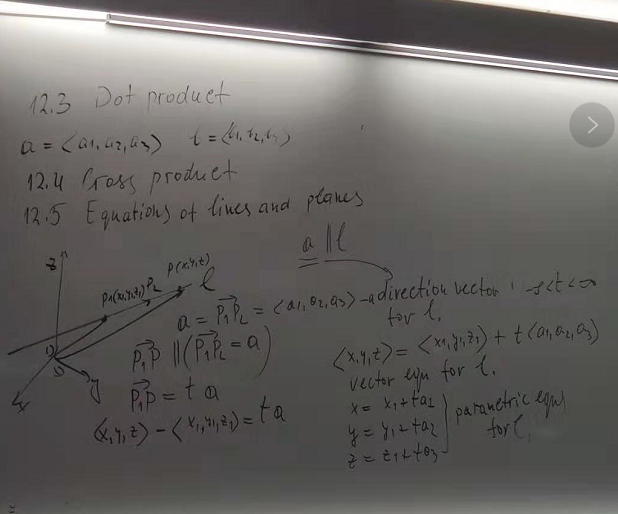 12.3 Dot product
a = <a1, a2, a3>
12.4 Cross product
12.5 Equations of lines and planes
a || l
z
P(x,y,z)
P1(x1,y1,z1) P2
l
a = P1P2 = <a1, a2, a3> - a direction vector
for l.
-∞<t<∞
P1P || (P1P2 = a)
P1P = t a
<x,y,z> - <x1,y1,z1> = ta
O
y
x
<x,y,z> = <x1,y1,z1> + t<a1,a2,a3>
vector eqn for l.
x = x1+ta1
y = y1+ta2
z = z1+ta3
parametric eqns
for l.